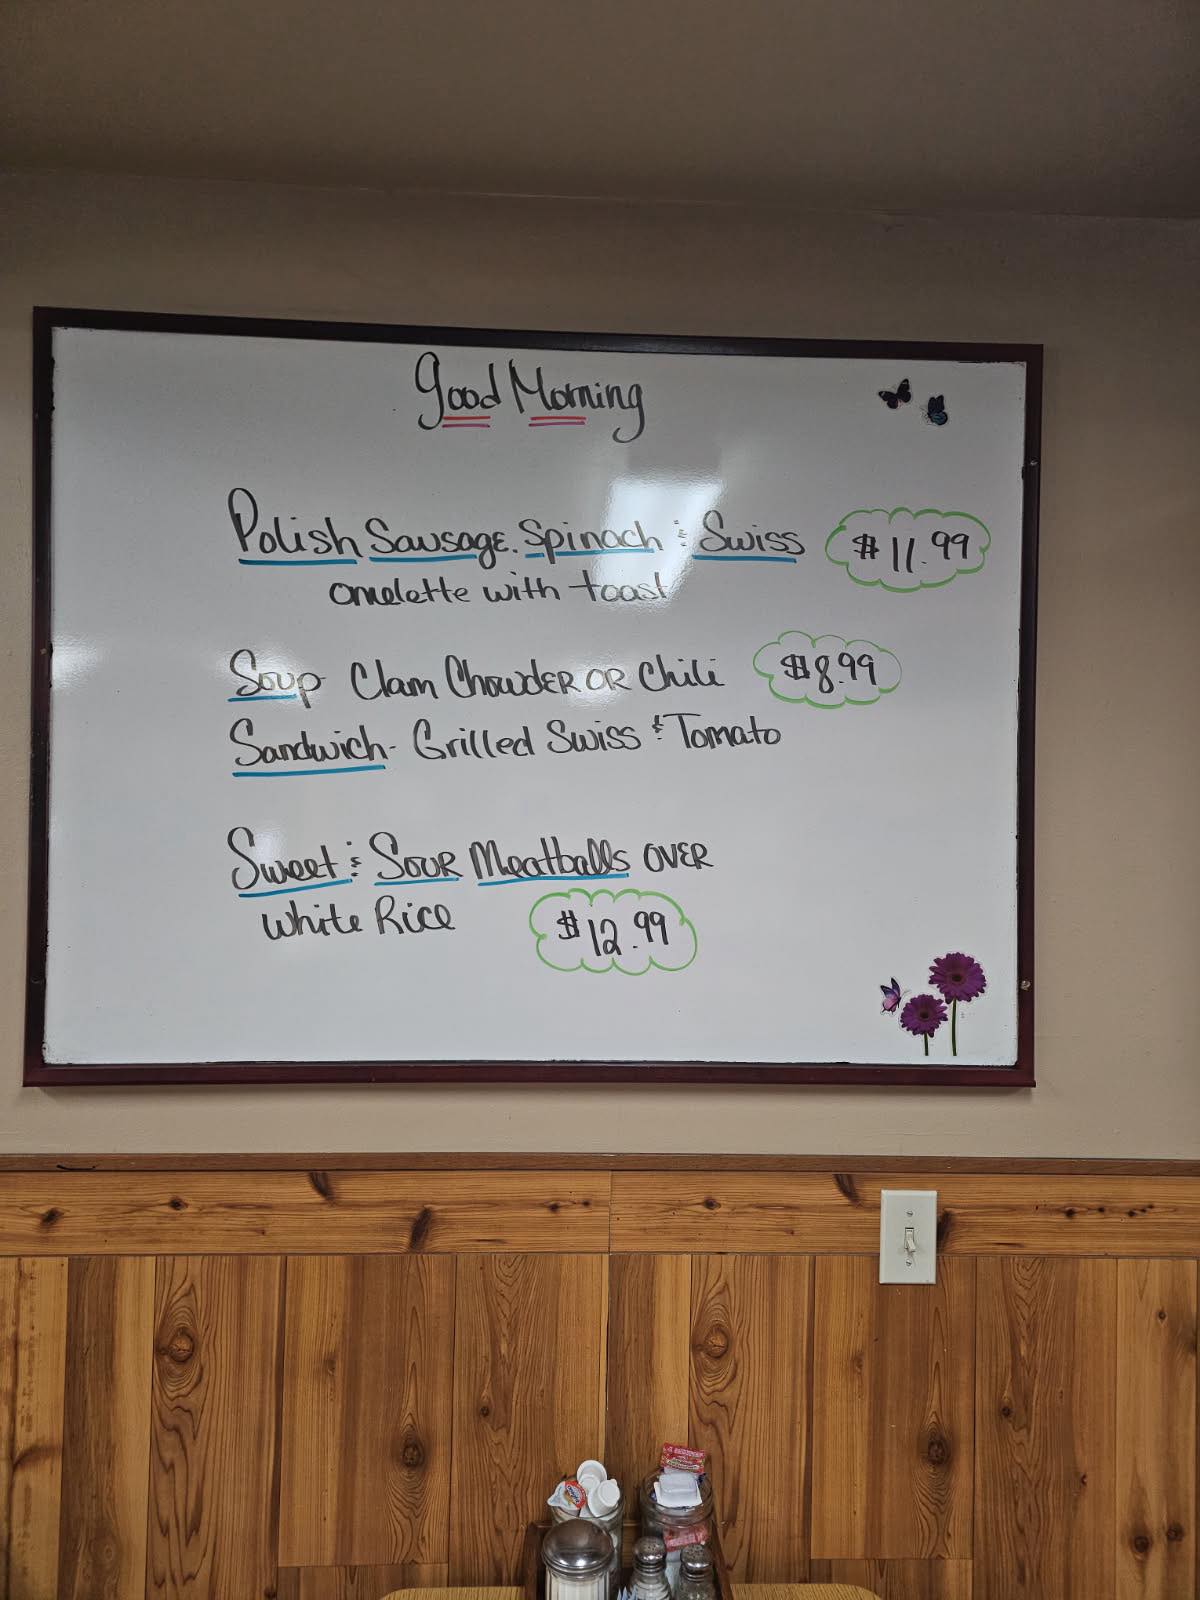 Good Morning
Polish Sausage, Spinach & Swiss $11.99
omelette with toast
Soup Clam Chowder or Chili $8.99
Sandwich- Grilled Swiss & Tomato
Sweet & Sour Meatballs over
White Rice $12.99